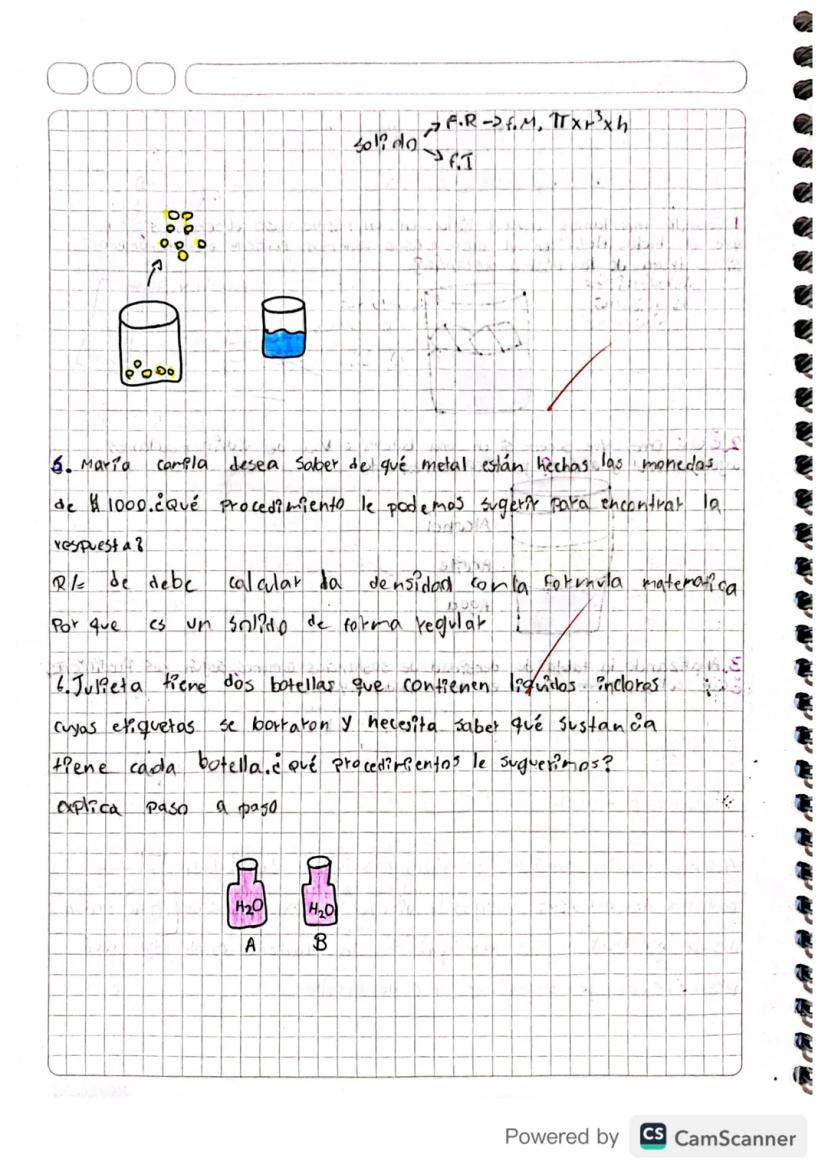 solido → F.R → f.M, π x r³ x h
→ f.I
5. María camila desea saber de qué metal están hechas las monedas
de $ 1000.¿Qué procedimiento le podemos sugerir para encontrar la
respuesta?
R/= de debe calcular da densidad con la formula matematica
Por que es un solido de forma regular
6. Julieta tiene dos botellas que contienen liquidos incloros
cuyas etiquetas se borraron y necesita saber qué sustancia
tiene cada botella.¿qué procedimientos le suguerimos?
explica paso a paso
H₂O H₂O
A B
Powered by CS CamScanner